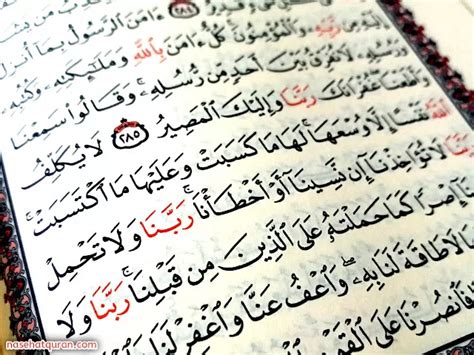 قَدِيرٌ ﴿٢٨٤﴾ ءَامَنَ ٱلرَّسُولُ بِمَآ أُنزِلَ
رَّبِّهِۦ وَٱلْمُؤْمِنُونَ كُلٌّ ءَامَنَ بِٱللَّهِ وَمَلَٰٓئِكَتِهِۦ وَكُتُبِهِۦ
وَرُسُلِهِۦ لَا نُفَرِّقُ بَيْنَ أَحَدٍ مِّن رُّسُلِهِۦ وَقَالُوا۟ سَمِعْنَا
وَأَطَعْنَا غُفْرَانَكَ رَبَّنَا وَإِلَيْكَ ٱلْمَصِيرُ ﴿٢٨٥﴾ لَا يُكَلِّفُ
ٱللَّهُ نَفْسًا إِلَّا وُسْعَهَا لَهَا مَا كَسَبَتْ وَعَلَيْهَا مَا ٱكْتَسَبَتْ
رَبَّنَا لَا تُؤَاخِذْنَآ إِن نَّسِينَآ أَوْ أَخْطَأْنَا رَبَّنَا وَلَا تَحْمِلْ
إِصْرًا كَمَا حَمَلْتَهُۥ عَلَى ٱلَّذِينَ مِن قَبْلِنَا رَبَّنَا وَلَا
لَا طَاقَةَ لَنَا بِهِۦ وَٱعْفُ عَنَّا وَٱغْفِرْ لَنَا
فَٱنصُرْنَا عَلَى ٱلْقَوْمِ
nasehatquran.com